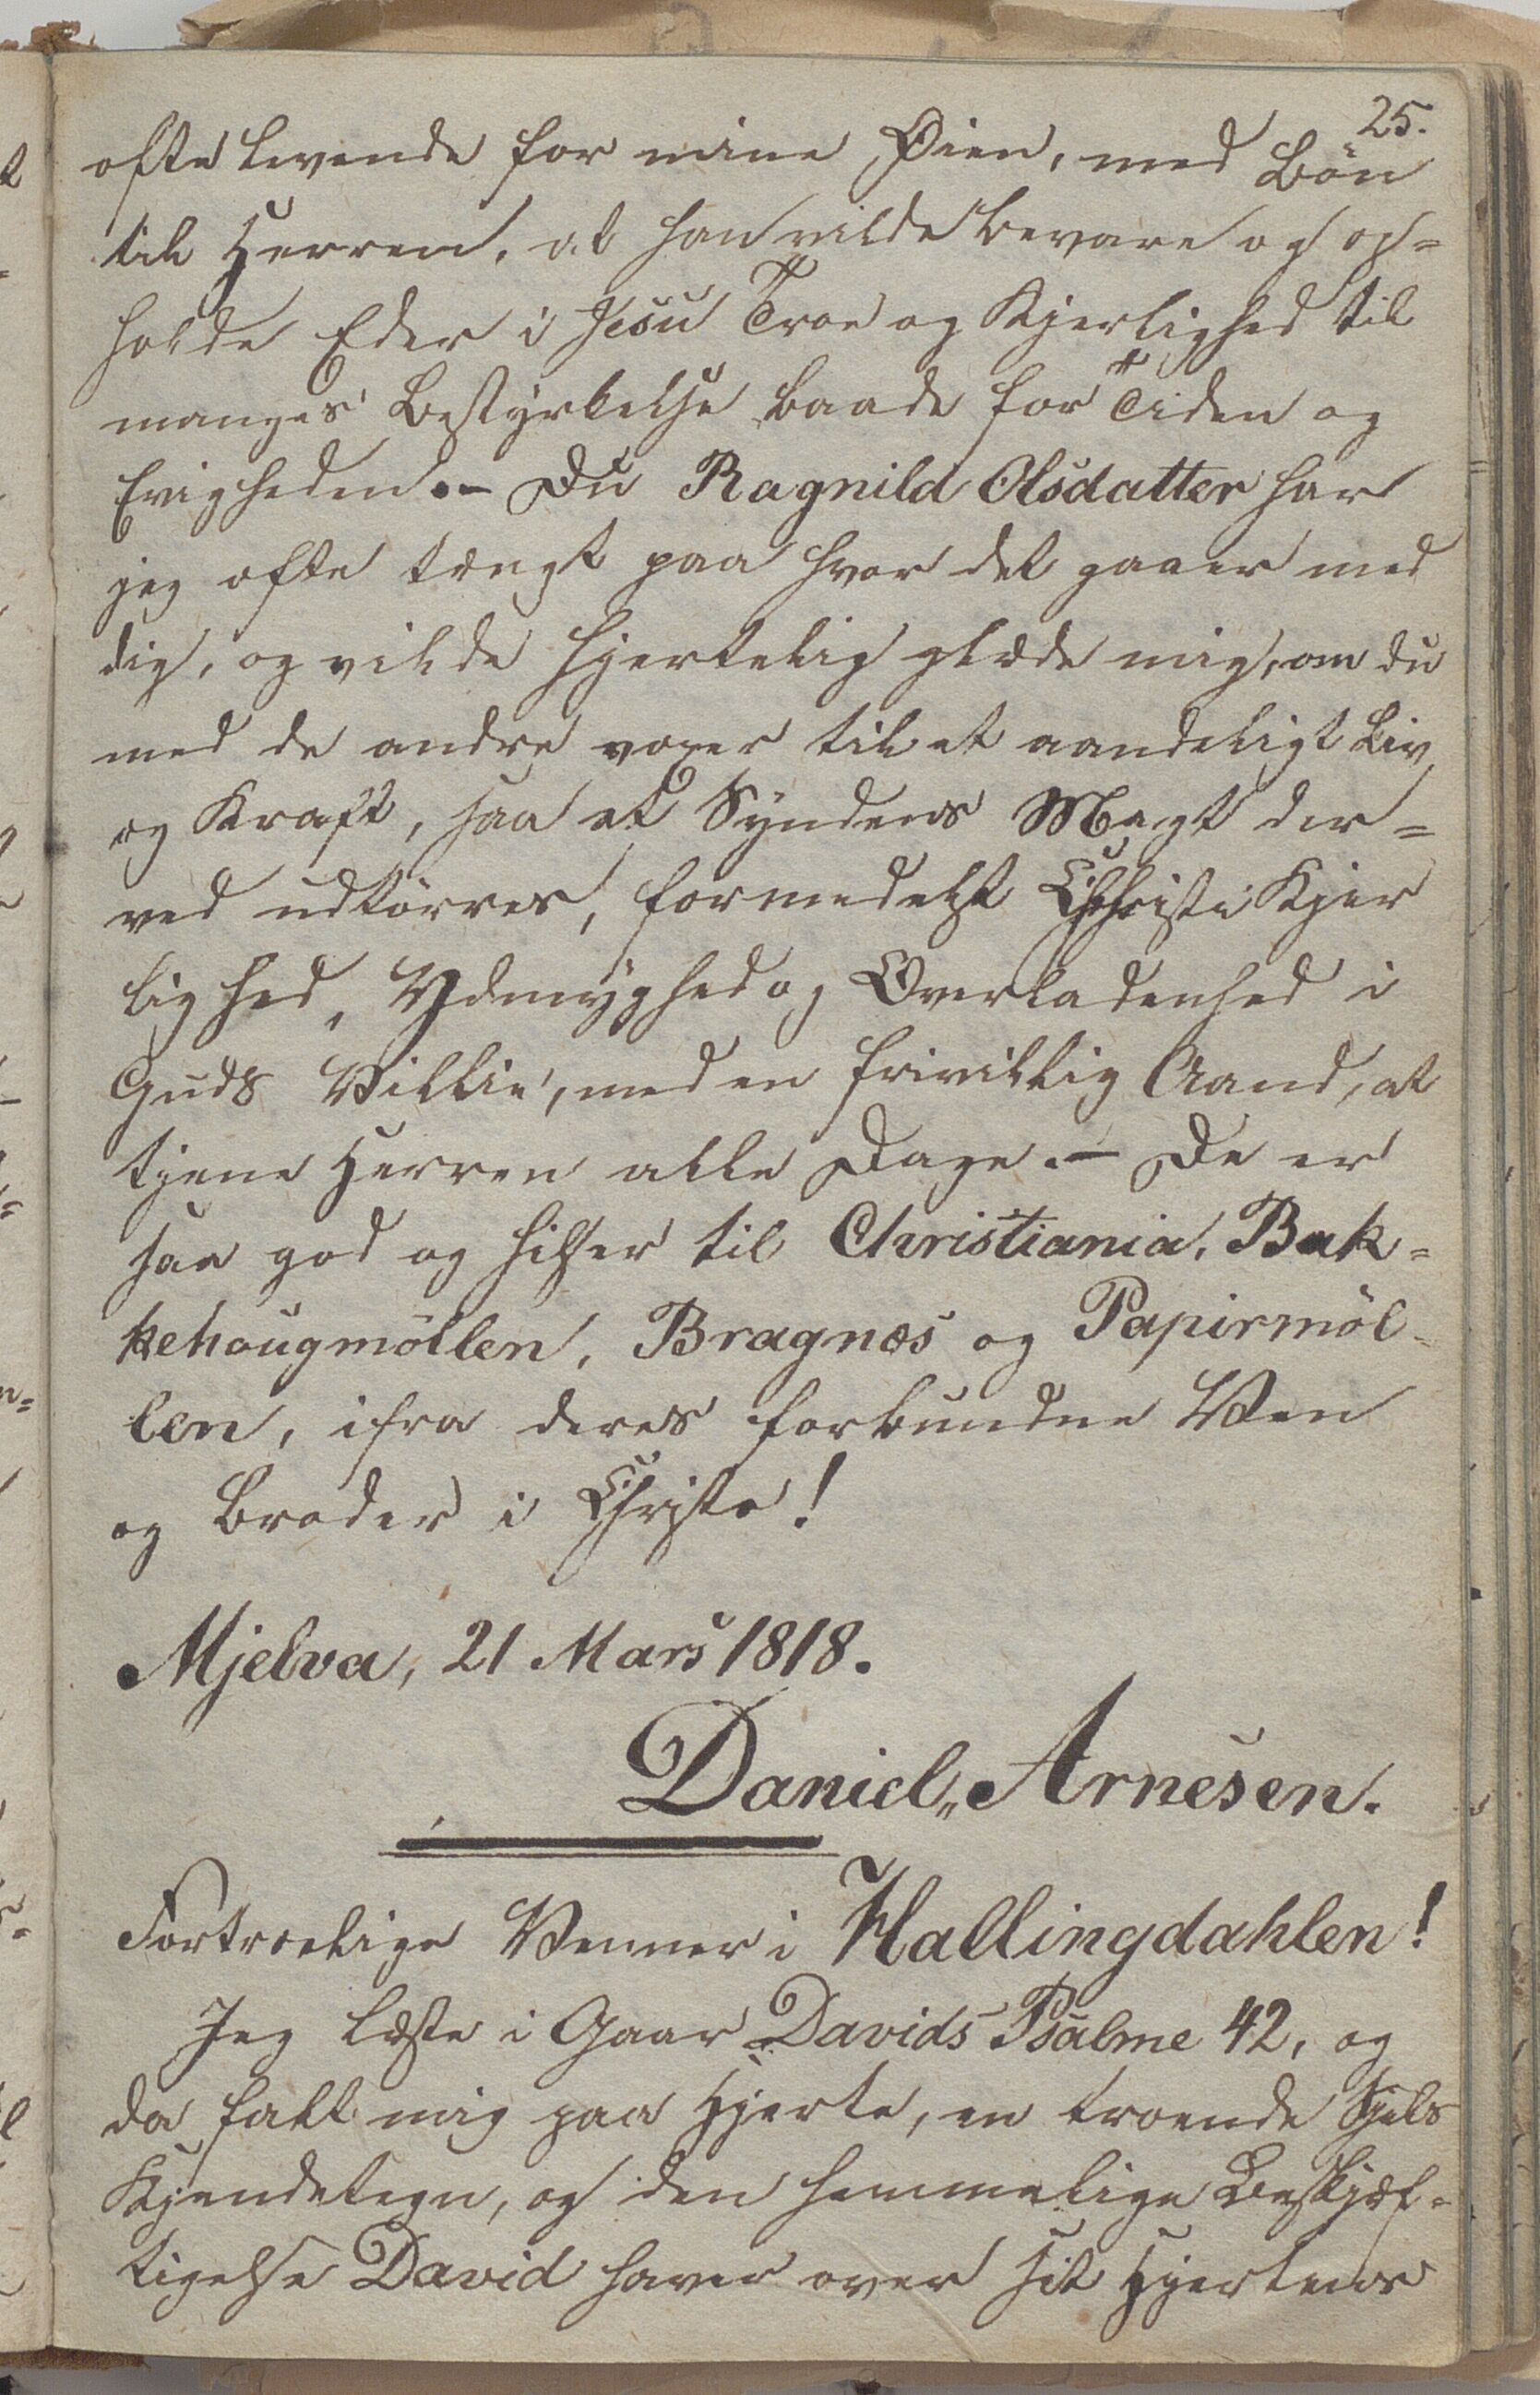 25.
ofte levende for mine Øien, med Bøn
til Herren, at han vilde bevare og op=
holde Eder i Jesu Troe og Kjerlighed til
manges Bestyrkelse baade for Tiden og
Evigheden. – Du Ragnild Olsdatter har
jeg ofte tængt paa hvor det gaaer med
dig, og vilde hjertelig glæde mig, om du
med de andre voxer til et aandeligt Liv
og Kraft, saa at Syndens Magt der=
ved udtørres, formedelst Christi Kjer
lighed, Ydmyghed og Overladenhed i
Guds Villie, med en frivillig Aand, at
tjene Herren alle Dage. – De er
saa god og hilser til Christiania, Bak=
kehougmøllen, Bragnæs og Papirmøl=
len, ifra deres forbundne Ven
og Broder i Christo!
Mjelva, 21 Mars 1818.
Daniel„ Arnesen.
Fortroelige Venner i Hallingdahlen!
Jeg læste i Gaar Davids Psalme 42, og
da falt mig paa Hjerte, en troende Sjels
Kjendetegn, og den hemmelige Beskjæf=
tigelse David haver over sit Hjertens